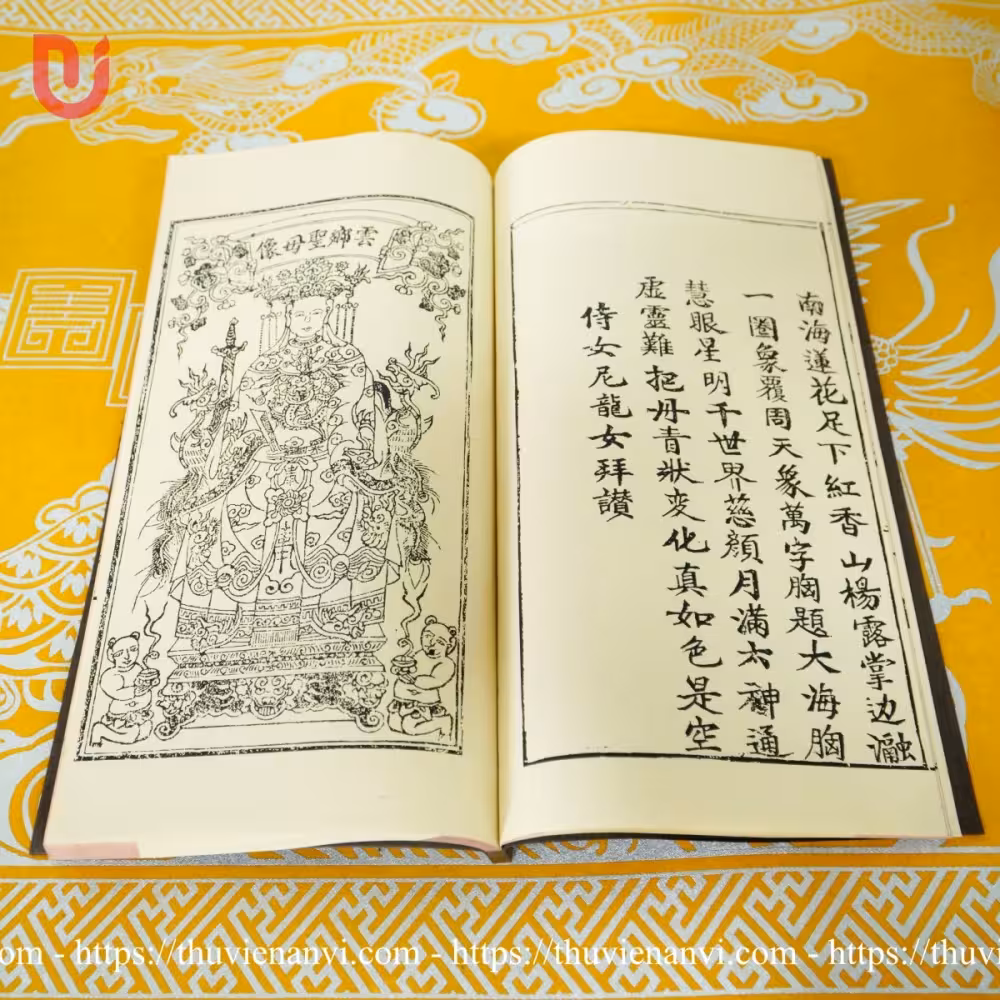 雲鄉聖母像
南海蓮花足下紅香山楊露掌边瀜
一圈象覆周天象萬字胸題大海胸
慧眼星明千世界慈顏月滿太神通
虛靈難把丹青狀変化真如色是空
侍女尼龍女拜讃
om - https://thuvienanvi.com - https://thuvienanvi.com - https://thuvi